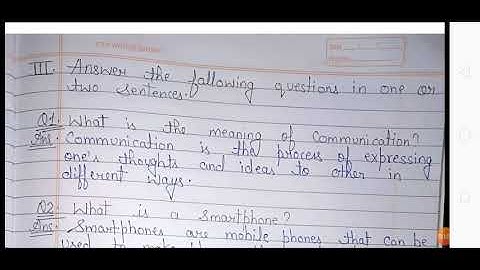 III. Answer the following questions in one or
two sentences.
Q1. What is the meaning of Communication?
Ans: Communication is the process of expressing
one's thoughts and ideas to other in
different ways.
Q2. What is a Smartphone?
Ans: Smartphones are mobile phones that can be
used to make